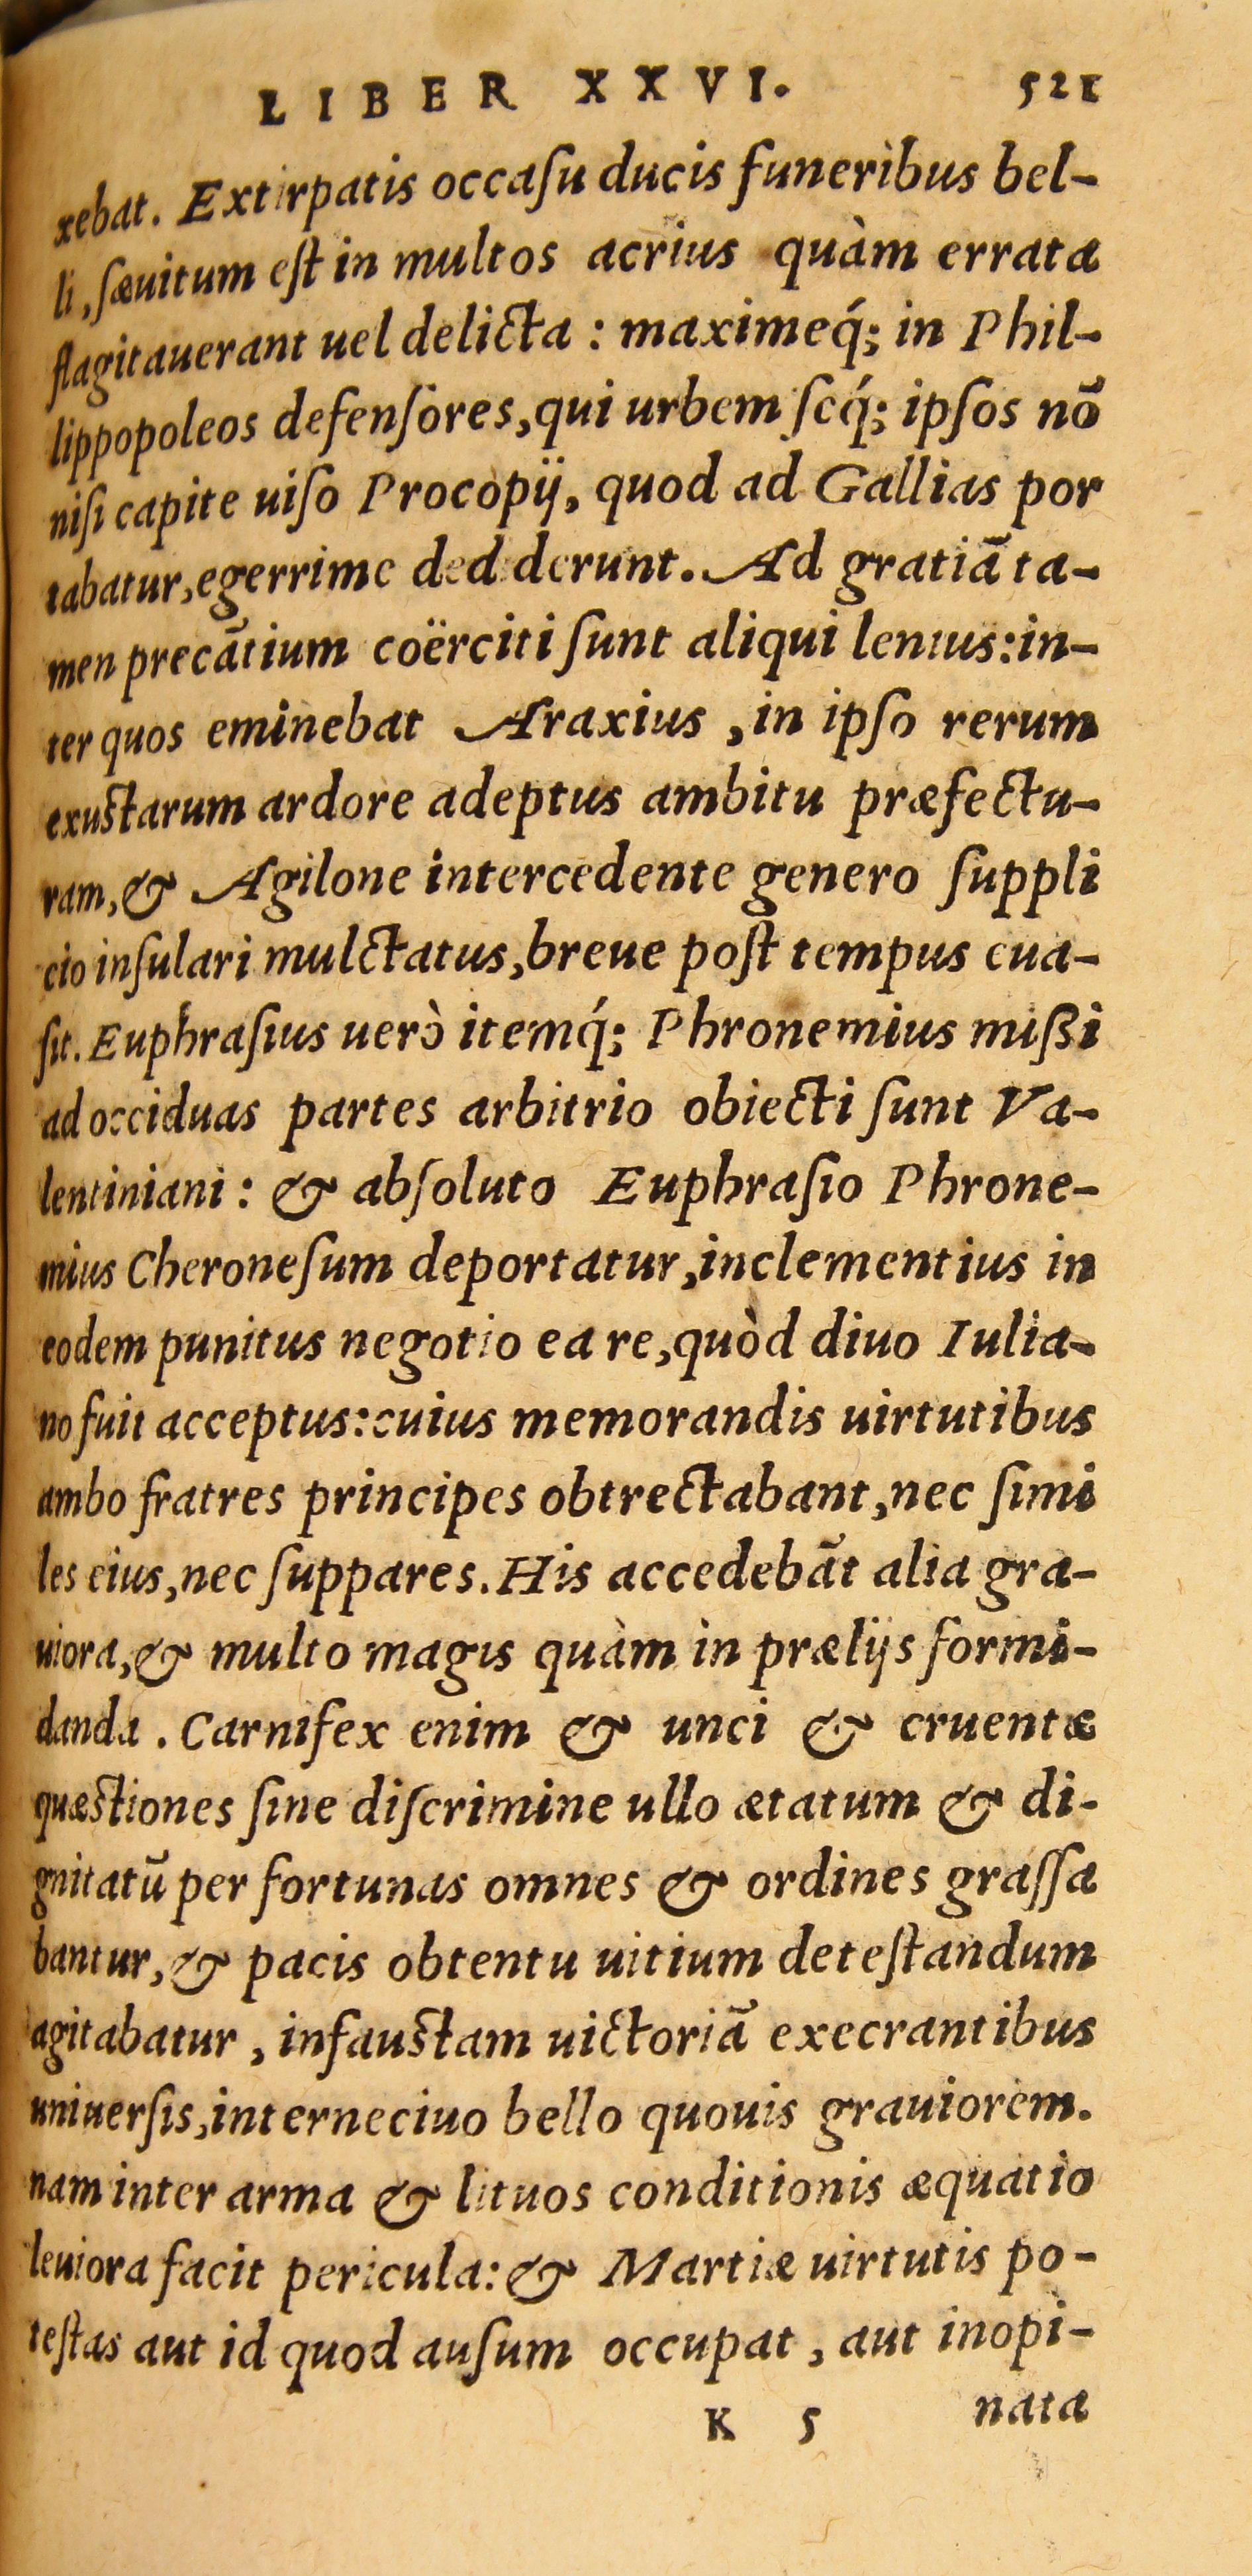 LIBER XXVI. 521
xebat. Extirpatis occaſu ducis funeribus bel-
li, ſæuitum eſt in multos acrius quàm errata
flagitauerant uel delicta : maximeq́; in Phil-
lippopoleos defenſores, qui urbem ſeq́; ipſos nō
niſi capite uiſo Procopij, quod ad Gallias por
tabatur, egerrime dediderunt. Ad gratiā ta-
men precātium coërciti ſunt aliqui lenius: in-
ter quos eminebat Araxius, in ipſo rerum
exuſtarum ardore adeptus ambitu præfectu-
ram, & Agilone intercedente genero ſuppli
cio inſulari mulctatus, breue poſt tempus eua-
ſit. Euphraſius uerò itemq́; Phronemius mißi
ad occiduas partes arbitrio obiecti ſunt Va-
lentiniani: & abſoluto Euphraſio Phrone-
mius Cheroneſum deportatur, inclementius in
eodem punitus negotio ea re, quòd diuo Iulia-
no fuit acceptus: cuius memorandis uirtutibus
ambo fratres principes obtrectabant, nec ſimi
les eius, nec ſuppares. His accedebāt alia gra-
uiora, & multo magis quàm in prælijs formi-
danda. Carnifex enim & unci & cruentæ
quæſtiones ſine diſcrimine ullo ætatum & di-
gnitatū per fortunas omnes & ordines graſſa
bantur, & pacis obtentu uitium deteſtandum
agitabatur, infauſtam uictoriā execrantibus
uniuerſis, interneciuo bello quouis grauiorem.
nam inter arma & lituos conditionis æquatio
leuiora facit pericula: & Martiæ uirtutis po-
teſtas aut id quod auſum occupat, aut inopi-
K 5 nata